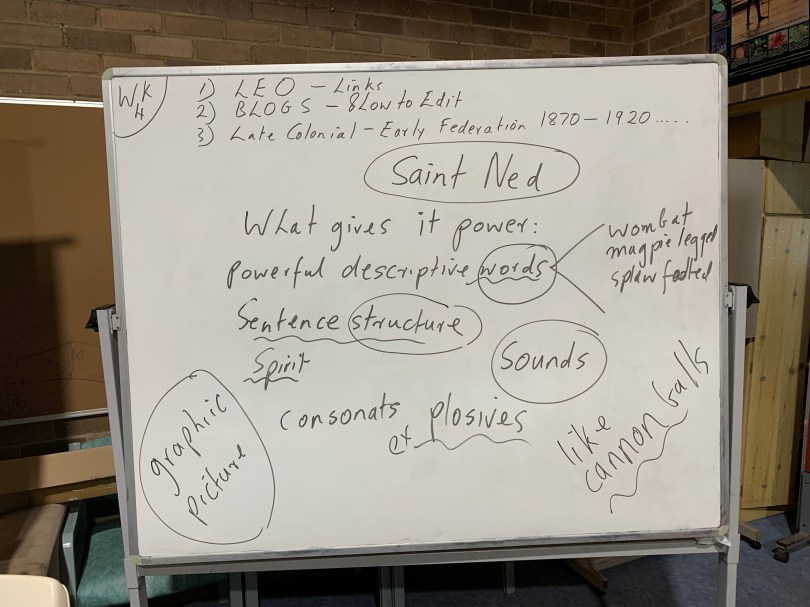 WK
4
1) LEO - Links
2) BLOGS - How to Edit
3) Late Colonial - Early Federation 1870 - 1920.....
Saint Ned
What gives it power:
powerful descriptive words
wombat
magpie legged
splaw footed
Sentence structure
Sounds
Spirit
consonats et plosives
like
cannon balls
graphic
picture